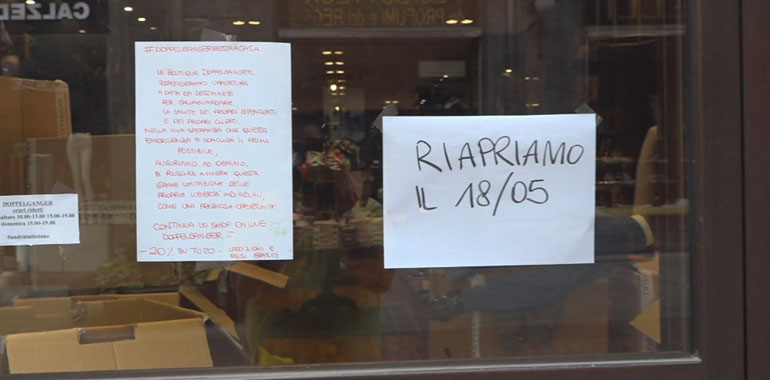 CALZED
PROFUMI e dei REG
#DOPPELGANGERRESTAACASA
LE BOUTIQUE DOPPELGANGER,
SOSPENDERANNO L'APERTURA
A DATA DA DESTINARSI
PER SALVAGUARDARE
LA SALUTE DEI PROPRI DIPENDENTI
E DEI PROPRI CLIENTI.
NELLA VIVA SPERANZA CHE QUESTA
EMERGENZA SI CONCLUDA IL PRIMA
POSSIBILE,
AUGURIAMO AD OGNUNO,
DI RIUSCIRE A VIVERE QUESTA
GRANDE LIMITAZIONE DELLE
PROPRIE LIBERTA' INDIVIDUALI,
COME UNA PREZIOSA OPPORTUNITA'.
CONTINUA LO SHOP ONLINE
DOPPELGANGER.IT
-20% SU TUTTO. SPEDIZIONI E
RESI GRATUITI
RIAPRIAMO
IL 18/05
DOPPELGANGER
orari ridotti
sabato 10.00-13.00 15.00-19.00
domenica 15.00-19.00
#andràtuttobene